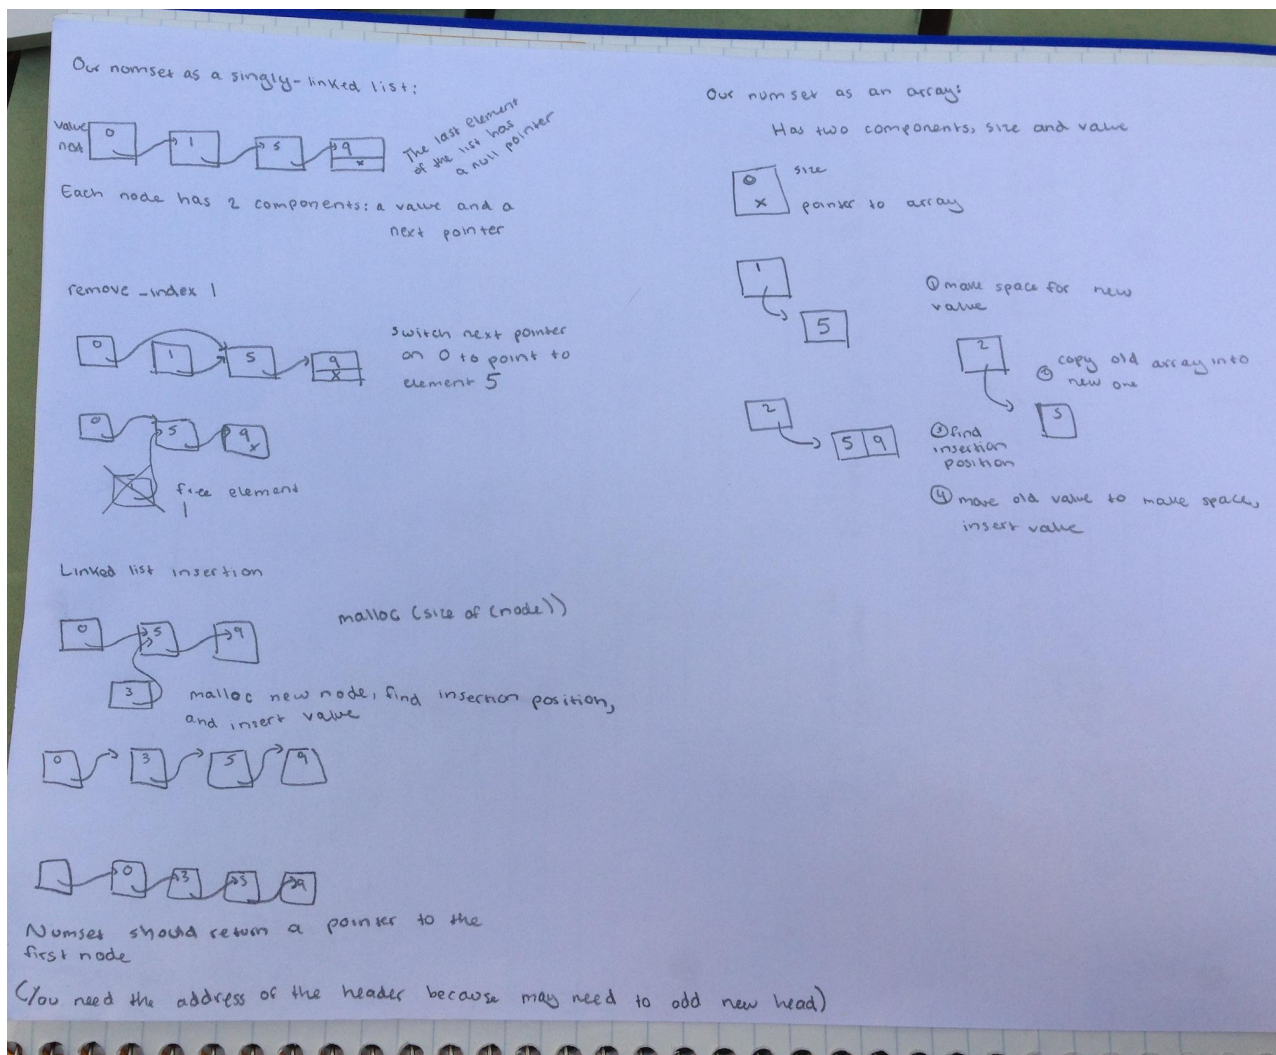 Our numset as a singly-linked list:
value
0 1 5 9
x
The last element
of the list has
a null pointer
Each node has 2 components: a value and a
next pointer
remove_index 1
0 1 5 9
x
switch next pointer
on 0 to point to
element 5
0 5 9
x
free element
1
Linked list insertion
malloc (size of (node))
0 5 9
3
malloc new node, find insertion position,
and insert value
0 3 5 9
0 3 5 9
Numset should return a pointer to the
first node
(You need the address of the header because may need to add new head)
Our numset as an array:
Has two components, size and value
0 size
x pointer to array
1
5
2
5 9
① make space for new
value
2
② copy old array into
new one
5
③ find
insertion
position
④ move old value to make space,
insert value